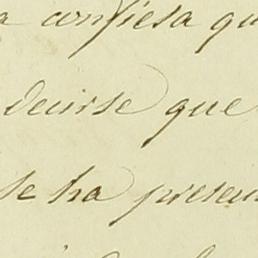 a confiesa qu
decirse que
se ha presen